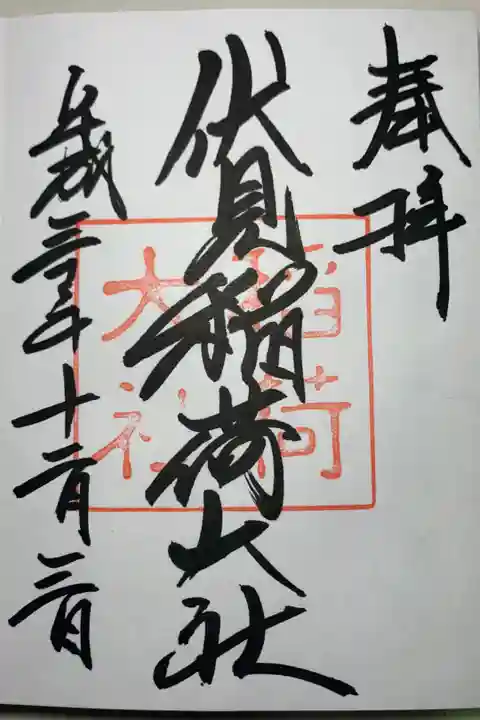 奉拝
伏見稲荷大社
稲荷
大社
平成三十年十二月三日